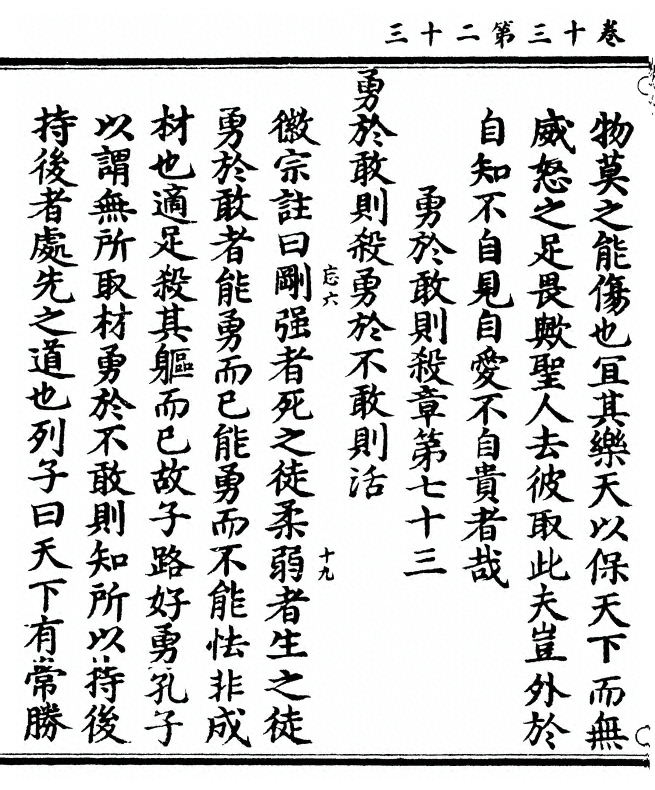 卷十三第二十三
物莫之能傷也冝其樂天以保天下而無
威怒之足畏歟聖人去彼取此夫豈外於
自知不自見自愛不自貴者哉
勇於敢則殺章第七十三
勇於敢則殺勇於不敢則活
忘六
十九
徽宗註曰剛强者死之徒柔弱者生之徒
勇於敢者能勇而已能勇而不能怯非成
材也適足殺其軀而已故子路好勇孔子
以謂無所取材勇於不敢則知所以持後
持後者處先之道也列子曰天下有常勝